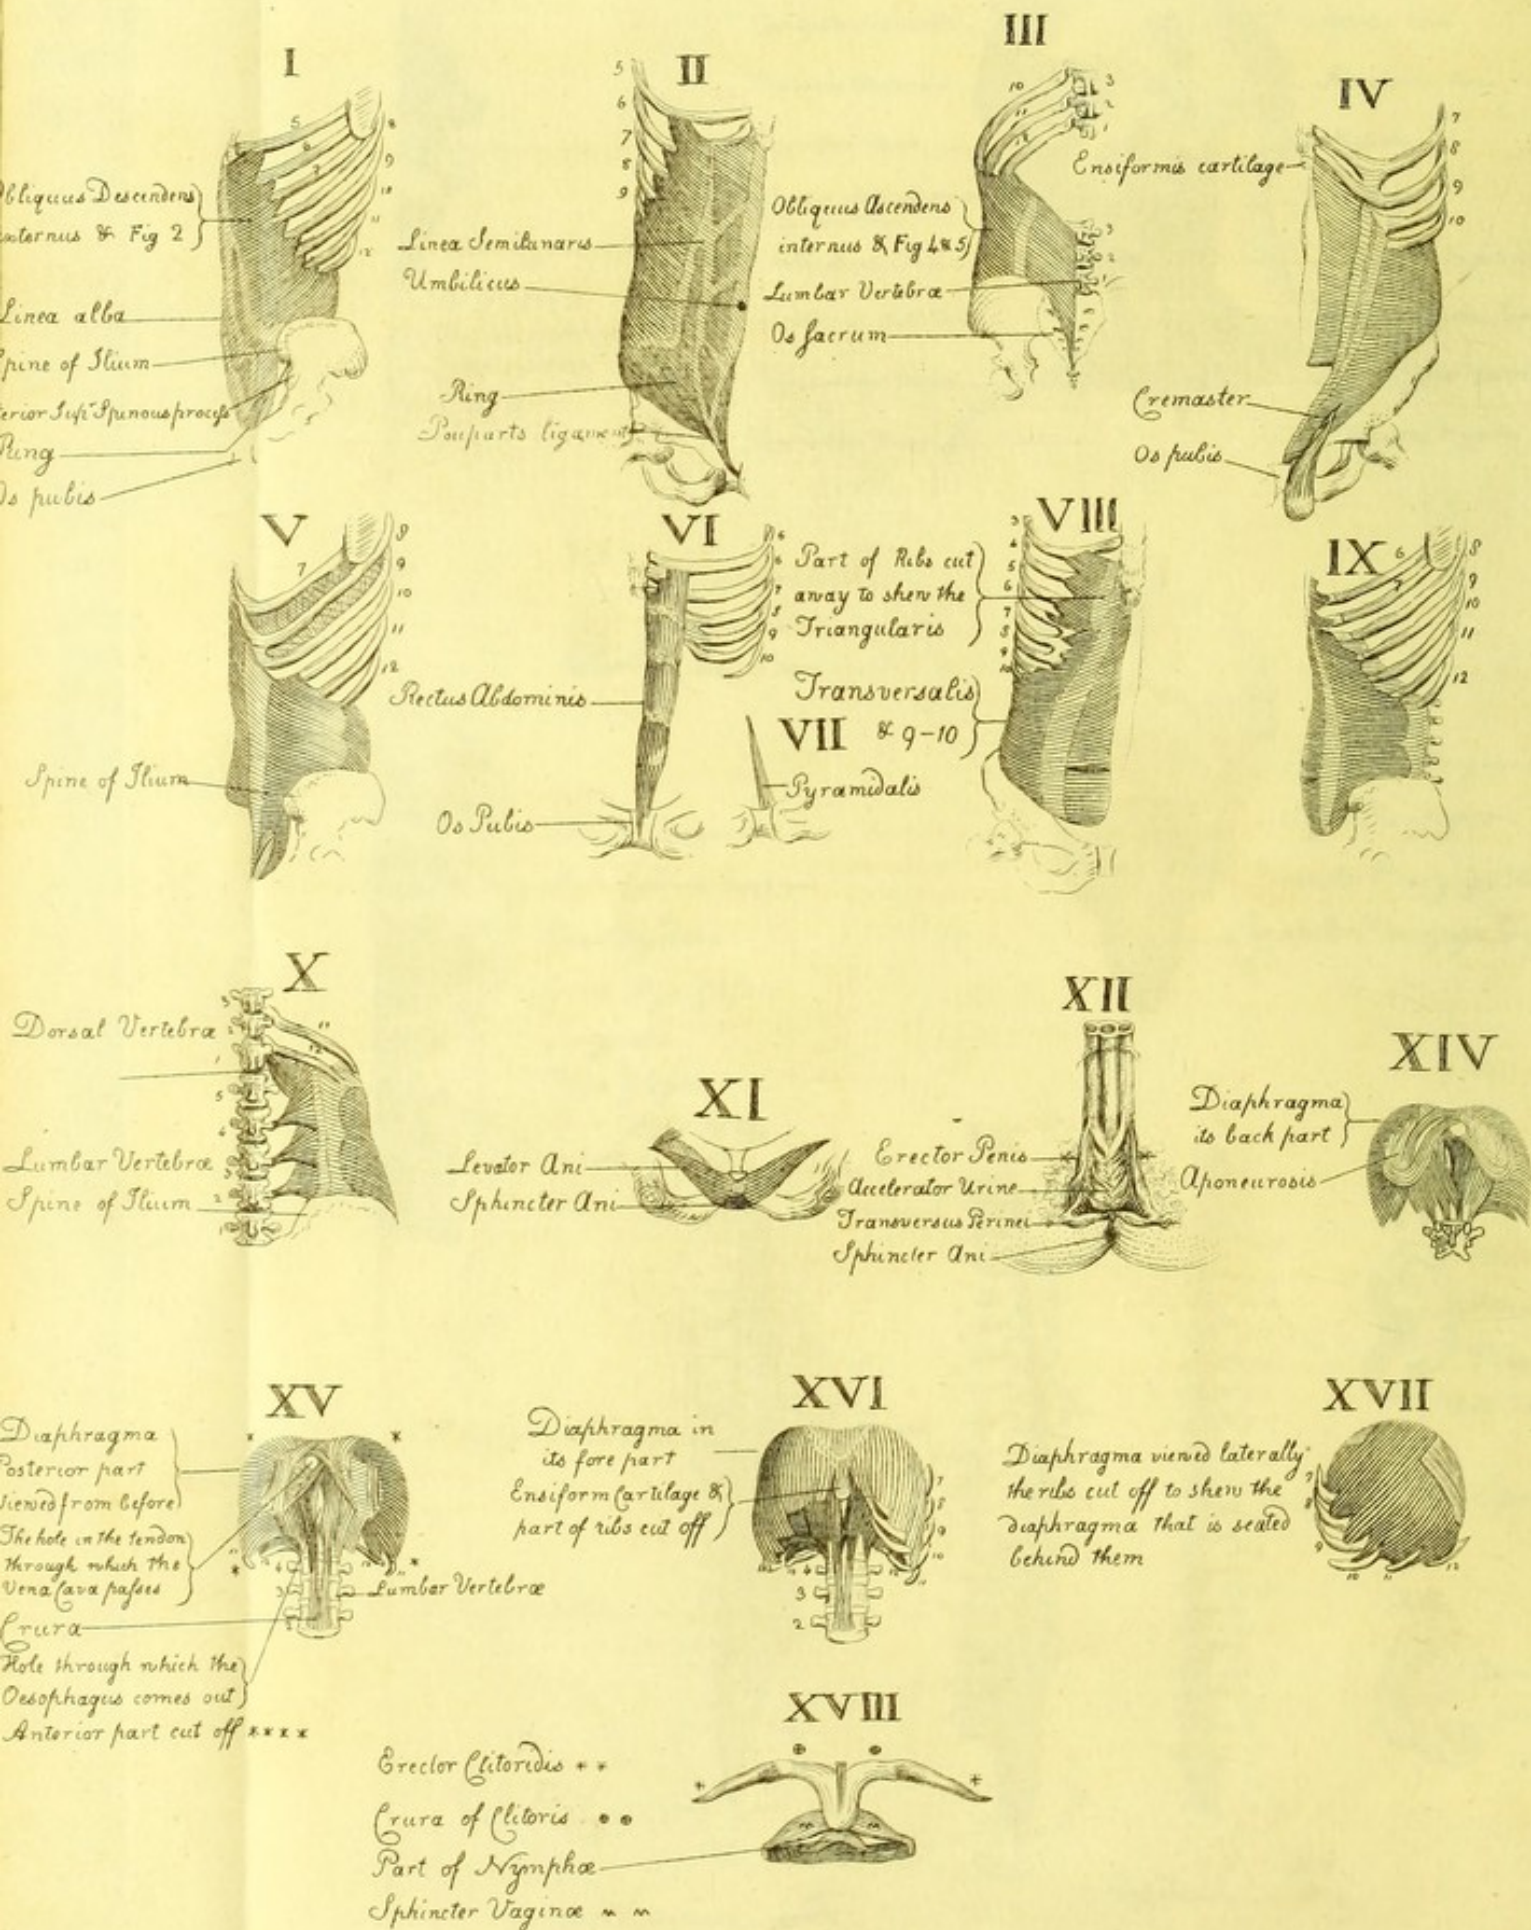 I
5
6
7
8
9
10
11
12
bliquus Descendens
externus & Fig 2
Linea alba
pine of Ilium
erior Supr Spinous process
Ring
Os pubis
II
5
6
7
8
9
Linea Semilunaris
Umbilicus
Ring
Pouparts ligament
III
10
11
12
3
2
1
Obliquus Ascendens
internus & Fig 4 & 5
3
2
1
Lumbar Vertebræ
Os Sacrum
IV
7
8
9
10
Ensiformis cartilage
Cremaster
Os pubis
V
7
8
9
10
11
12
Spine of Ilium
VI
6
6
7
8
9
10
Rectus Abdominis
Os Pubis
VII
Pyramidalis
VIII
3
4
5
6
7
8
9
10
Part of Ribs cut
away to shew the
Triangularis
Transversalis
& 9-10
IX
6
7
8
9
10
11
12
X
3
2
1
5
4
3
2
1
11
12
Dorsal Vertebræ
Lumbar Vertebræ
Spine of Ilium
XI
Levator Ani
Sphincter Ani
XII
Erector Penis
Accelerator Urine
Transversus Perinei
Sphincter Ani
XIV
Diaphragma
its back part
Aponeurosis
XV
Diaphragma
Posterior part
viewed from before
The hole in the tendon
through which the
Vena Cava passes
Crura
Hole through which the
Oesophagus comes out
Anterior part cut off ****
* *
* *
4
3
Lumbar Vertebræ
XVI
Diaphragma in
its fore part
Ensiform Cartilage &
part of ribs cut off
7
8
9
10
11
12
4
3
2
XVII
Diaphragma viewed laterally
the ribs cut off to shew the
diaphragma that is seated
behind them
7
8
9
10
11
12
XVIII
Erector Clitoridis * *
Crura of Clitoris
Part of Nymphæ
Sphincter Vaginæ